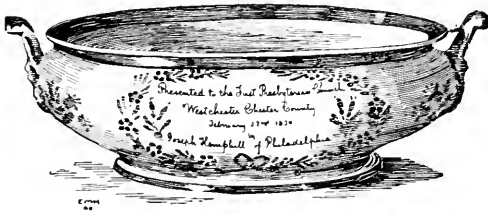 Presented to the First Presbyterian Church
West Chester Chester County
February 17th 18
Joseph Hemphill of Philadelphia